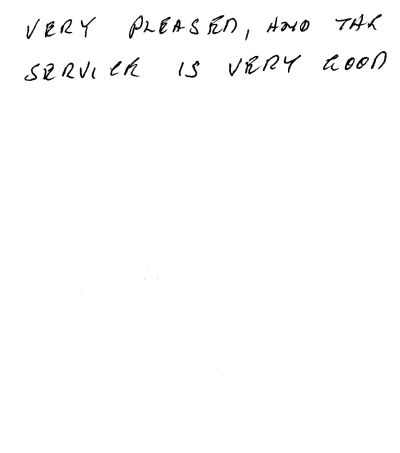 VERY PLEASED, AND THE
SERVICE IS VERY GOOD